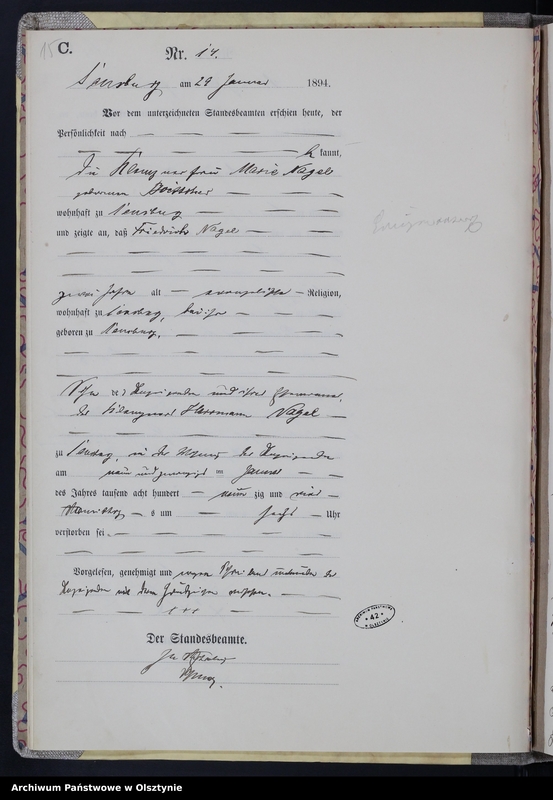 15 C.
Nr. 14.
Sensburg am 29 Januar 1894.
Vor dem unterzeichneten Standesbeamten erschien heute, der
Persönlichkeit nach
be kannt,
die Klempnerfrau Marie Nagel
geborene
wohnhaft zu Sensburg
und zeigte an, daß Friedrich Nagel
zwei Jahre alt evangelischer Religion,
wohnhaft zu Sensburg, bei ihr
geboren zu Sensburg,
Sohn der Anzeigenden und ihres Ehemannes,
des Klempners Herrmann Nagel
zu Sensburg, in der Wohnung der Anzeigenden
am neun und zwanzigsten Januar
des Jahres tausend acht hundert neun zig und vier
Vormittags um sechs Uhr
verstorben sei.
Vorgelesen, genehmigt und wegen Schreibens der
Anzeigenden mit dem Handzeichen versehen.
+++
Der Standesbeamte.
In Vertretung
42
Archiwum Państwowe w Olsztynie